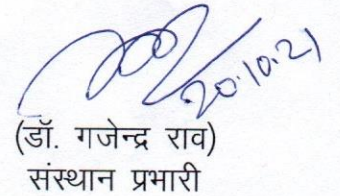 20.10.21
(डॉ. गजेन्द्र राव)
संस्थान प्रभारी